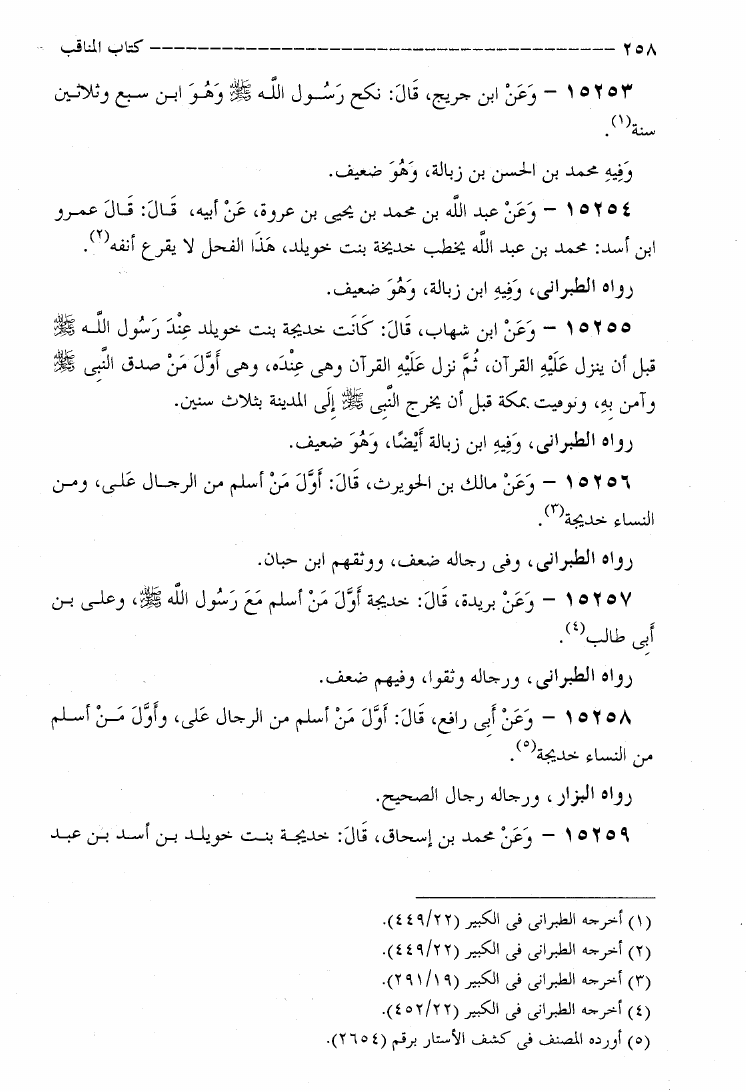 ٢٥٨ ------------------------------------------ كتاب المناقب
١٥٢٥٣ – وَعَنْ ابن جريج، قَالَ: نكح رَسُـول اللَّـه ﷺ وَهُـوَ ابـن سـبع وثلاثـين
سنة(١).
وَفِيهِ محمد بن الحسن بن زبالة، وَهُوَ ضعيف.
١٥٢٥٤ – وَعَنْ عبد اللَّه بن محمد بن يحيى بن عروة، عَنْ أبيه، قَـالَ: قَـالَ عمـرو
ابن أسد: محمد بن عبد اللَّه يخطب خديخة بنت خويلد، هَذَا الفحل لا يقرع أنفه(٢).
رواه الطبرانى، وَفِيهِ ابن زبالة، وَهُوَ ضعيف.
١٥٢٥٥ – وَعَنْ ابن شهاب، قَالَ: كَانَت خديجة بنت خويلد عِنْدَ رَسُول اللَّـه ﷺ
قبل أن ينزل عَلَيْهِ القرآن، ثُمَّ نزل عَلَيْهِ القرآن وهى عِنْدَه، وهى أَوَّلَ مَنْ صدق النَّبِى ﷺ
وآمن بِهِ، وتوفيت بمكة قبل أن يخرج النَّبِى ﷺ إِلَى المدينة بثلاث سنين.
رواه الطبرانى، وَفِيهِ ابن زبالة أَيْضًا، وَهُوَ ضعيف.
١٥٢٥٦ – وَعَنْ مالك بن الحويرث، قَالَ: أَوَّلَ مَنْ أسلم من الرجـال عَلـى، ومـن
النساء خديجة(٣).
رواه الطبرانى، وفى رجاله ضعف، ووثقهم ابن حبان.
١٥٢٥٧ – وَعَنْ بريدة، قَالَ: خديجة أَوَّلَ مَنْ أسلم مَعَ رَسُول اللَّه ﷺ، وعلـى بـن
أَبِى طالب(٤).
رواه الطبرانى، ورجاله وثقوا، وفيهم ضعف.
١٥٢٥٨ – وَعَنْ أَبِى رافع، قَالَ: أَوَّلَ مَنْ أسلم من الرجال عَلى، وأَوَّلَ مَـنْ أسـلم
من النساء خديجة(٥).
رواه البزار، ورجاله رجال الصحيح.
١٥٢٥٩ – وَعَنْ محمد بن إسحاق، قَالَ: خديجـة بنـت خويلـد بـن أسـد بـن عبـد
(١) أخرجه الطبرانى فى الكبير (٤٤٩/٢٢).
(٢) أخرجه الطبرانى فى الكبير (٤٤٩/٢٢).
(٣) أخرجه الطبرانى فى الكبير (٢٩١/١٩).
(٤) أخرجه الطبرانى فى الكبير (٤٥٢/٢٢).
(٥) أورده المصنف فى كشف الأستار برقم (٢٦٥٤).